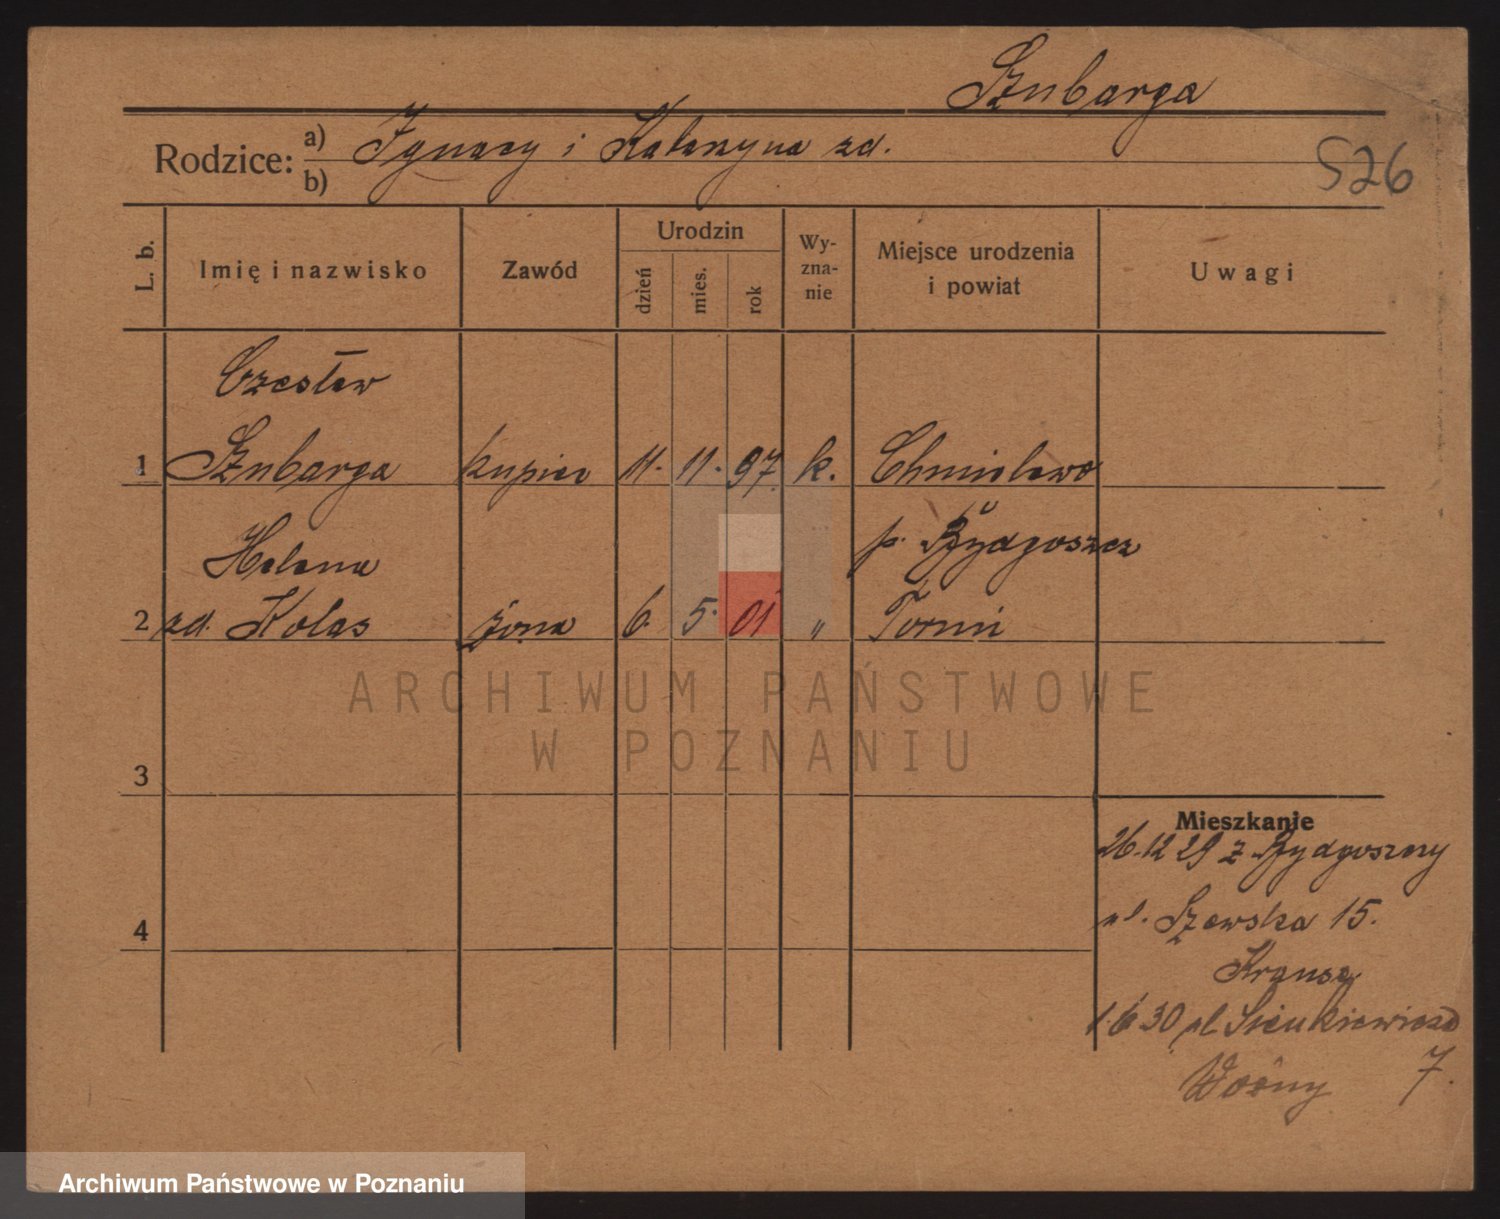 Sznbarga
Rodzice:
a) Ignacy i Katarzyna zd.
b)
526
L. b.
Imię i nazwisko
Zawód
Urodzin
dzień
mies.
rok
Wy-
zna-
nie
Miejsce urodzenia
i powiat
Uwagi
Czesław
1 Sznbarga kupiec 11. 11. 97. k. Chmielewo
p. Bydgoszcz
Helena
2 zd. Kolas żona 6. 5. 01 " Toruń
3
4
Mieszkanie
26.12 29 z Bydgoszczy
ul. Szewska 15.
Krause
1.6 30 ul Sienkiewicza
7.
Woźny
ARCHIWUM PAŃSTWOWE
W POZNANIU
Archiwum Państwowe w Poznaniu